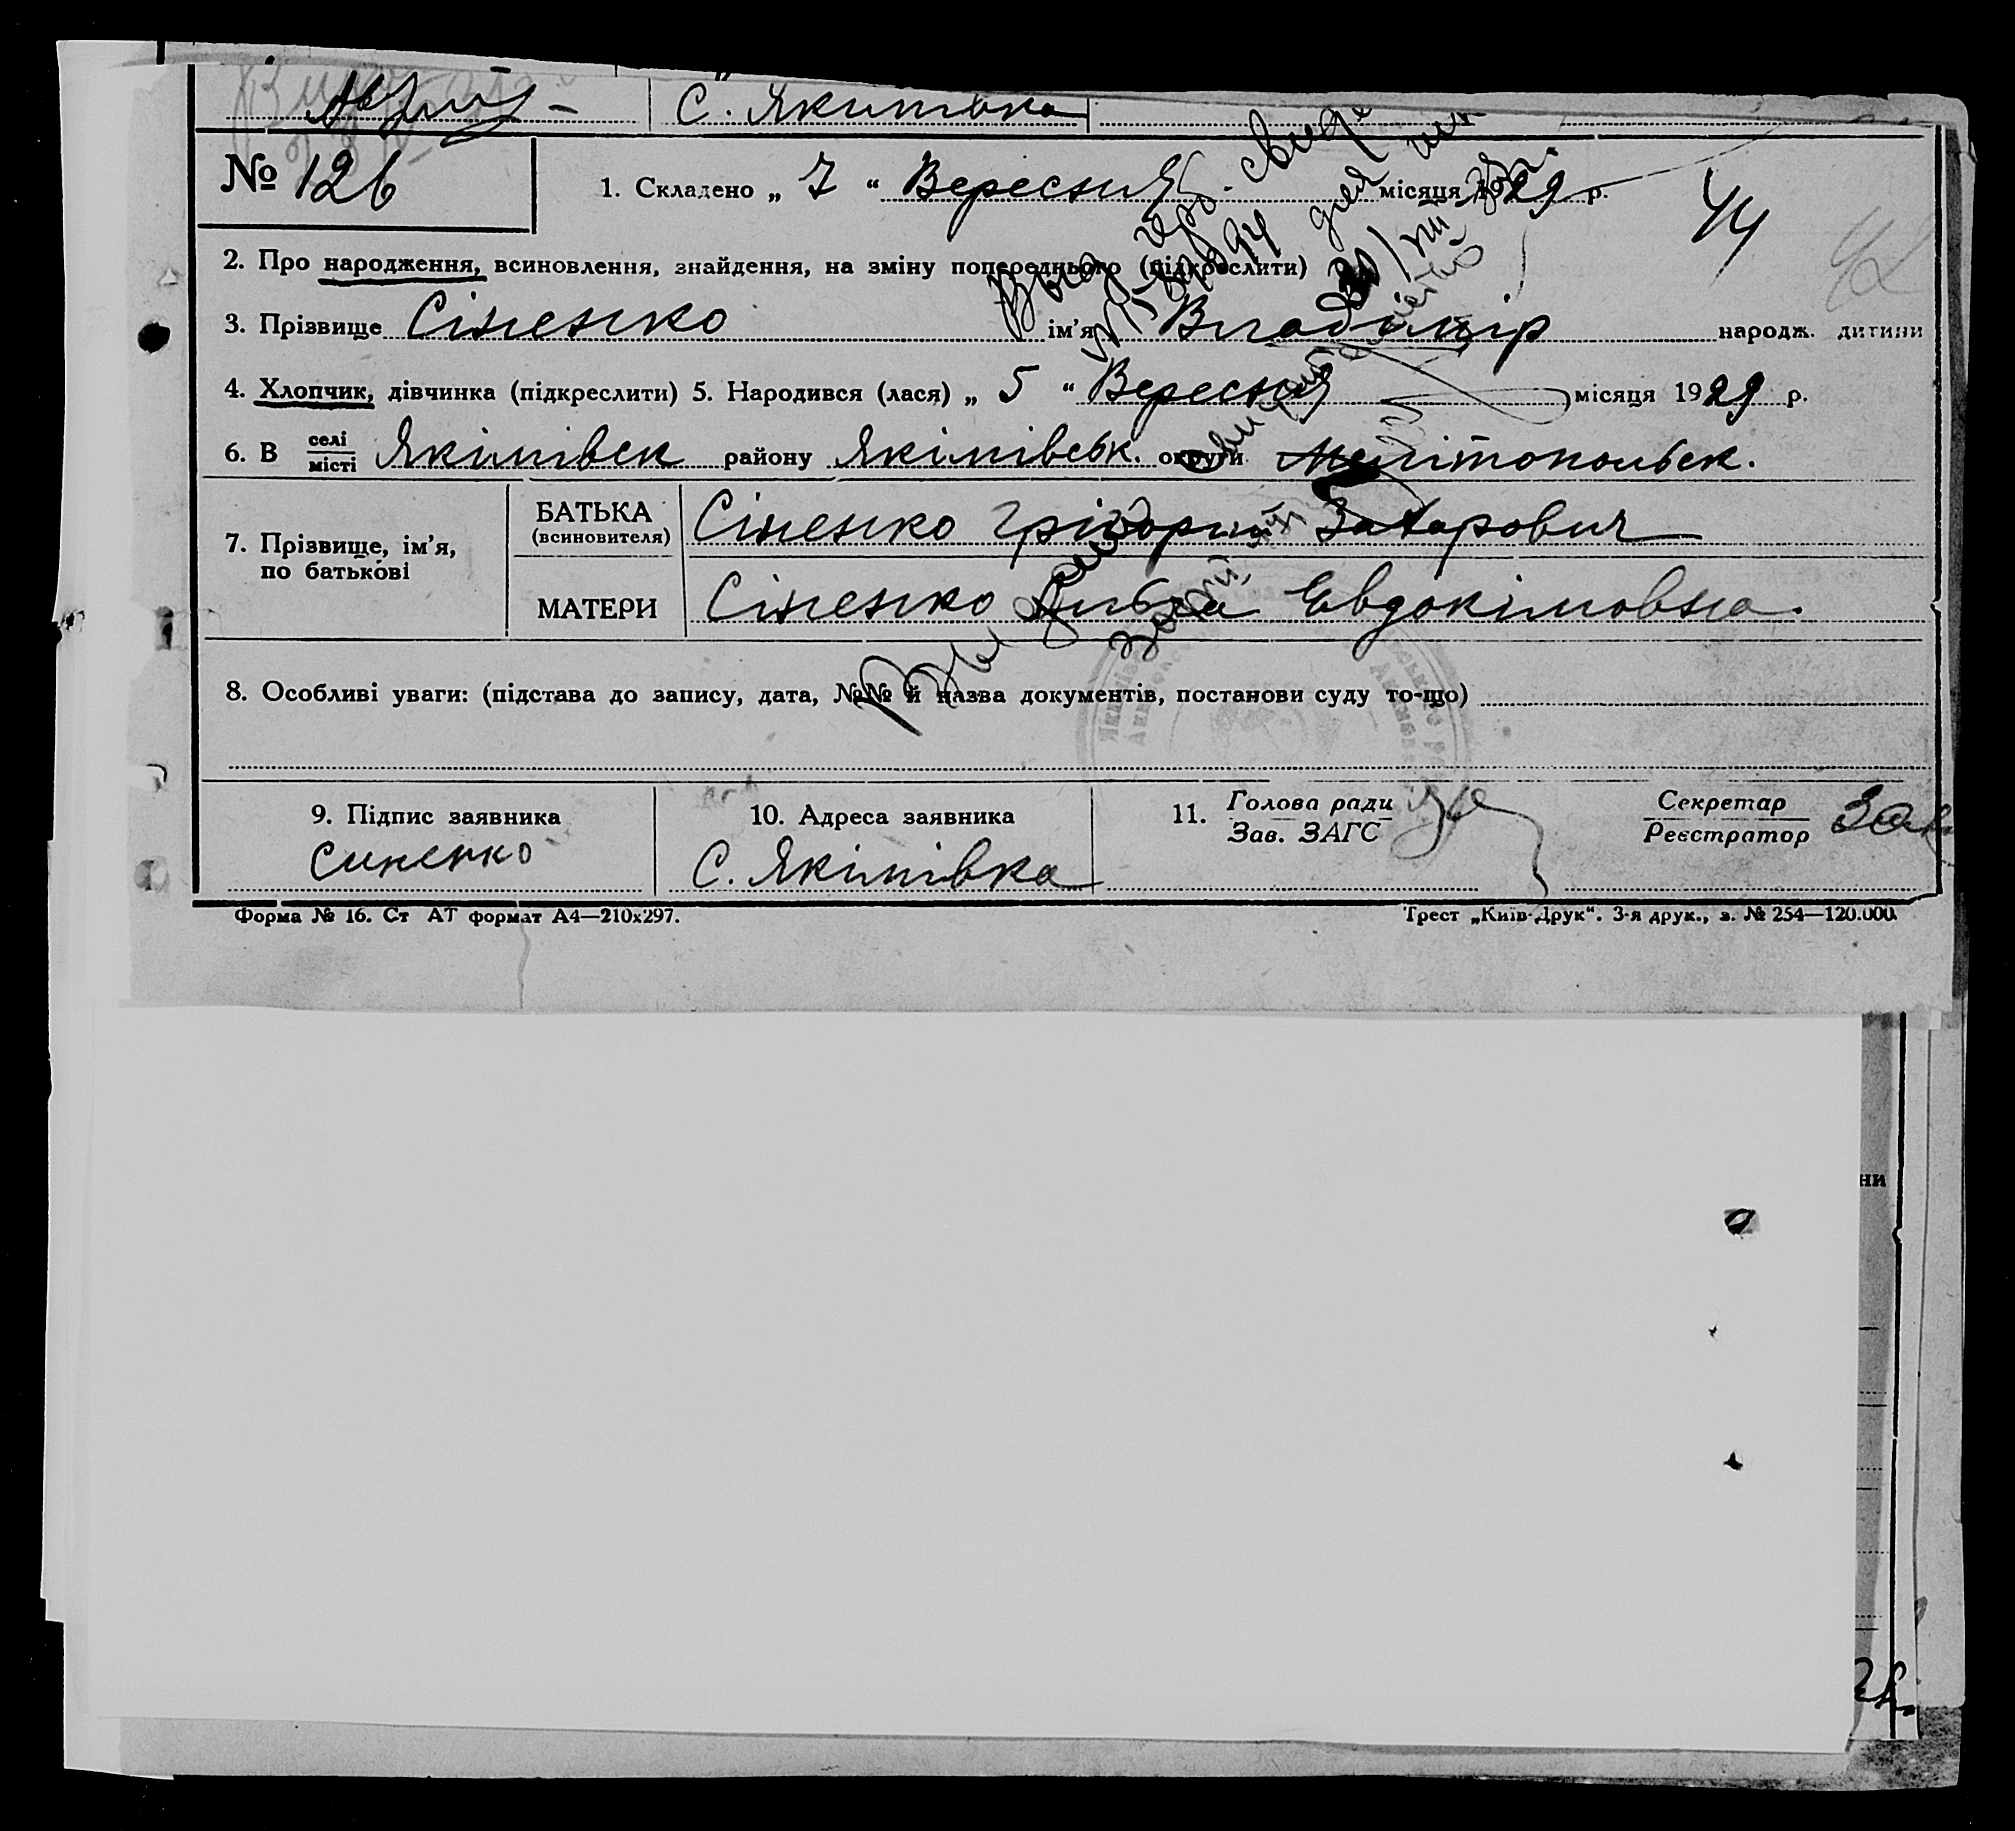 С. Якимовка
№ 126
1. Складено „ 7 “ Вересня місяця 1929 р.
44
42
2. Про народження, всиновлення, знайдення, на зміну попереднього (підкреслити)
3. Прізвище Сіненко ім’я Владімір народж. дитини
4. Хлопчик, дівчинка (підкреслити) 5. Народився (лася) „ 5 “ Вересня місяця 1929 р.
6. В селі місті Якимівск району Якімівськ. округи Мелітопольск.
7. Прізвище, ім’я, по батькові
БАТЬКА (всиновителя) Сіненко Грігорий Захарович
МАТЕРИ Сіненко Ольга Евдокімовна.
8. Особливі уваги: (підстава до запису, дата, №№ й назва документів, постанови суду то-що)
9. Підпис заявника
Синенко
10. Адреса заявника
С. Якімівка
11. Голова ради
Зав. ЗАГС
Секретар
Реєстратор
Форма № 16. Ст АТ формат А4—210х297.
Трест „Київ-Друк“. 3-я друк., з. № 254—120.000.
ни